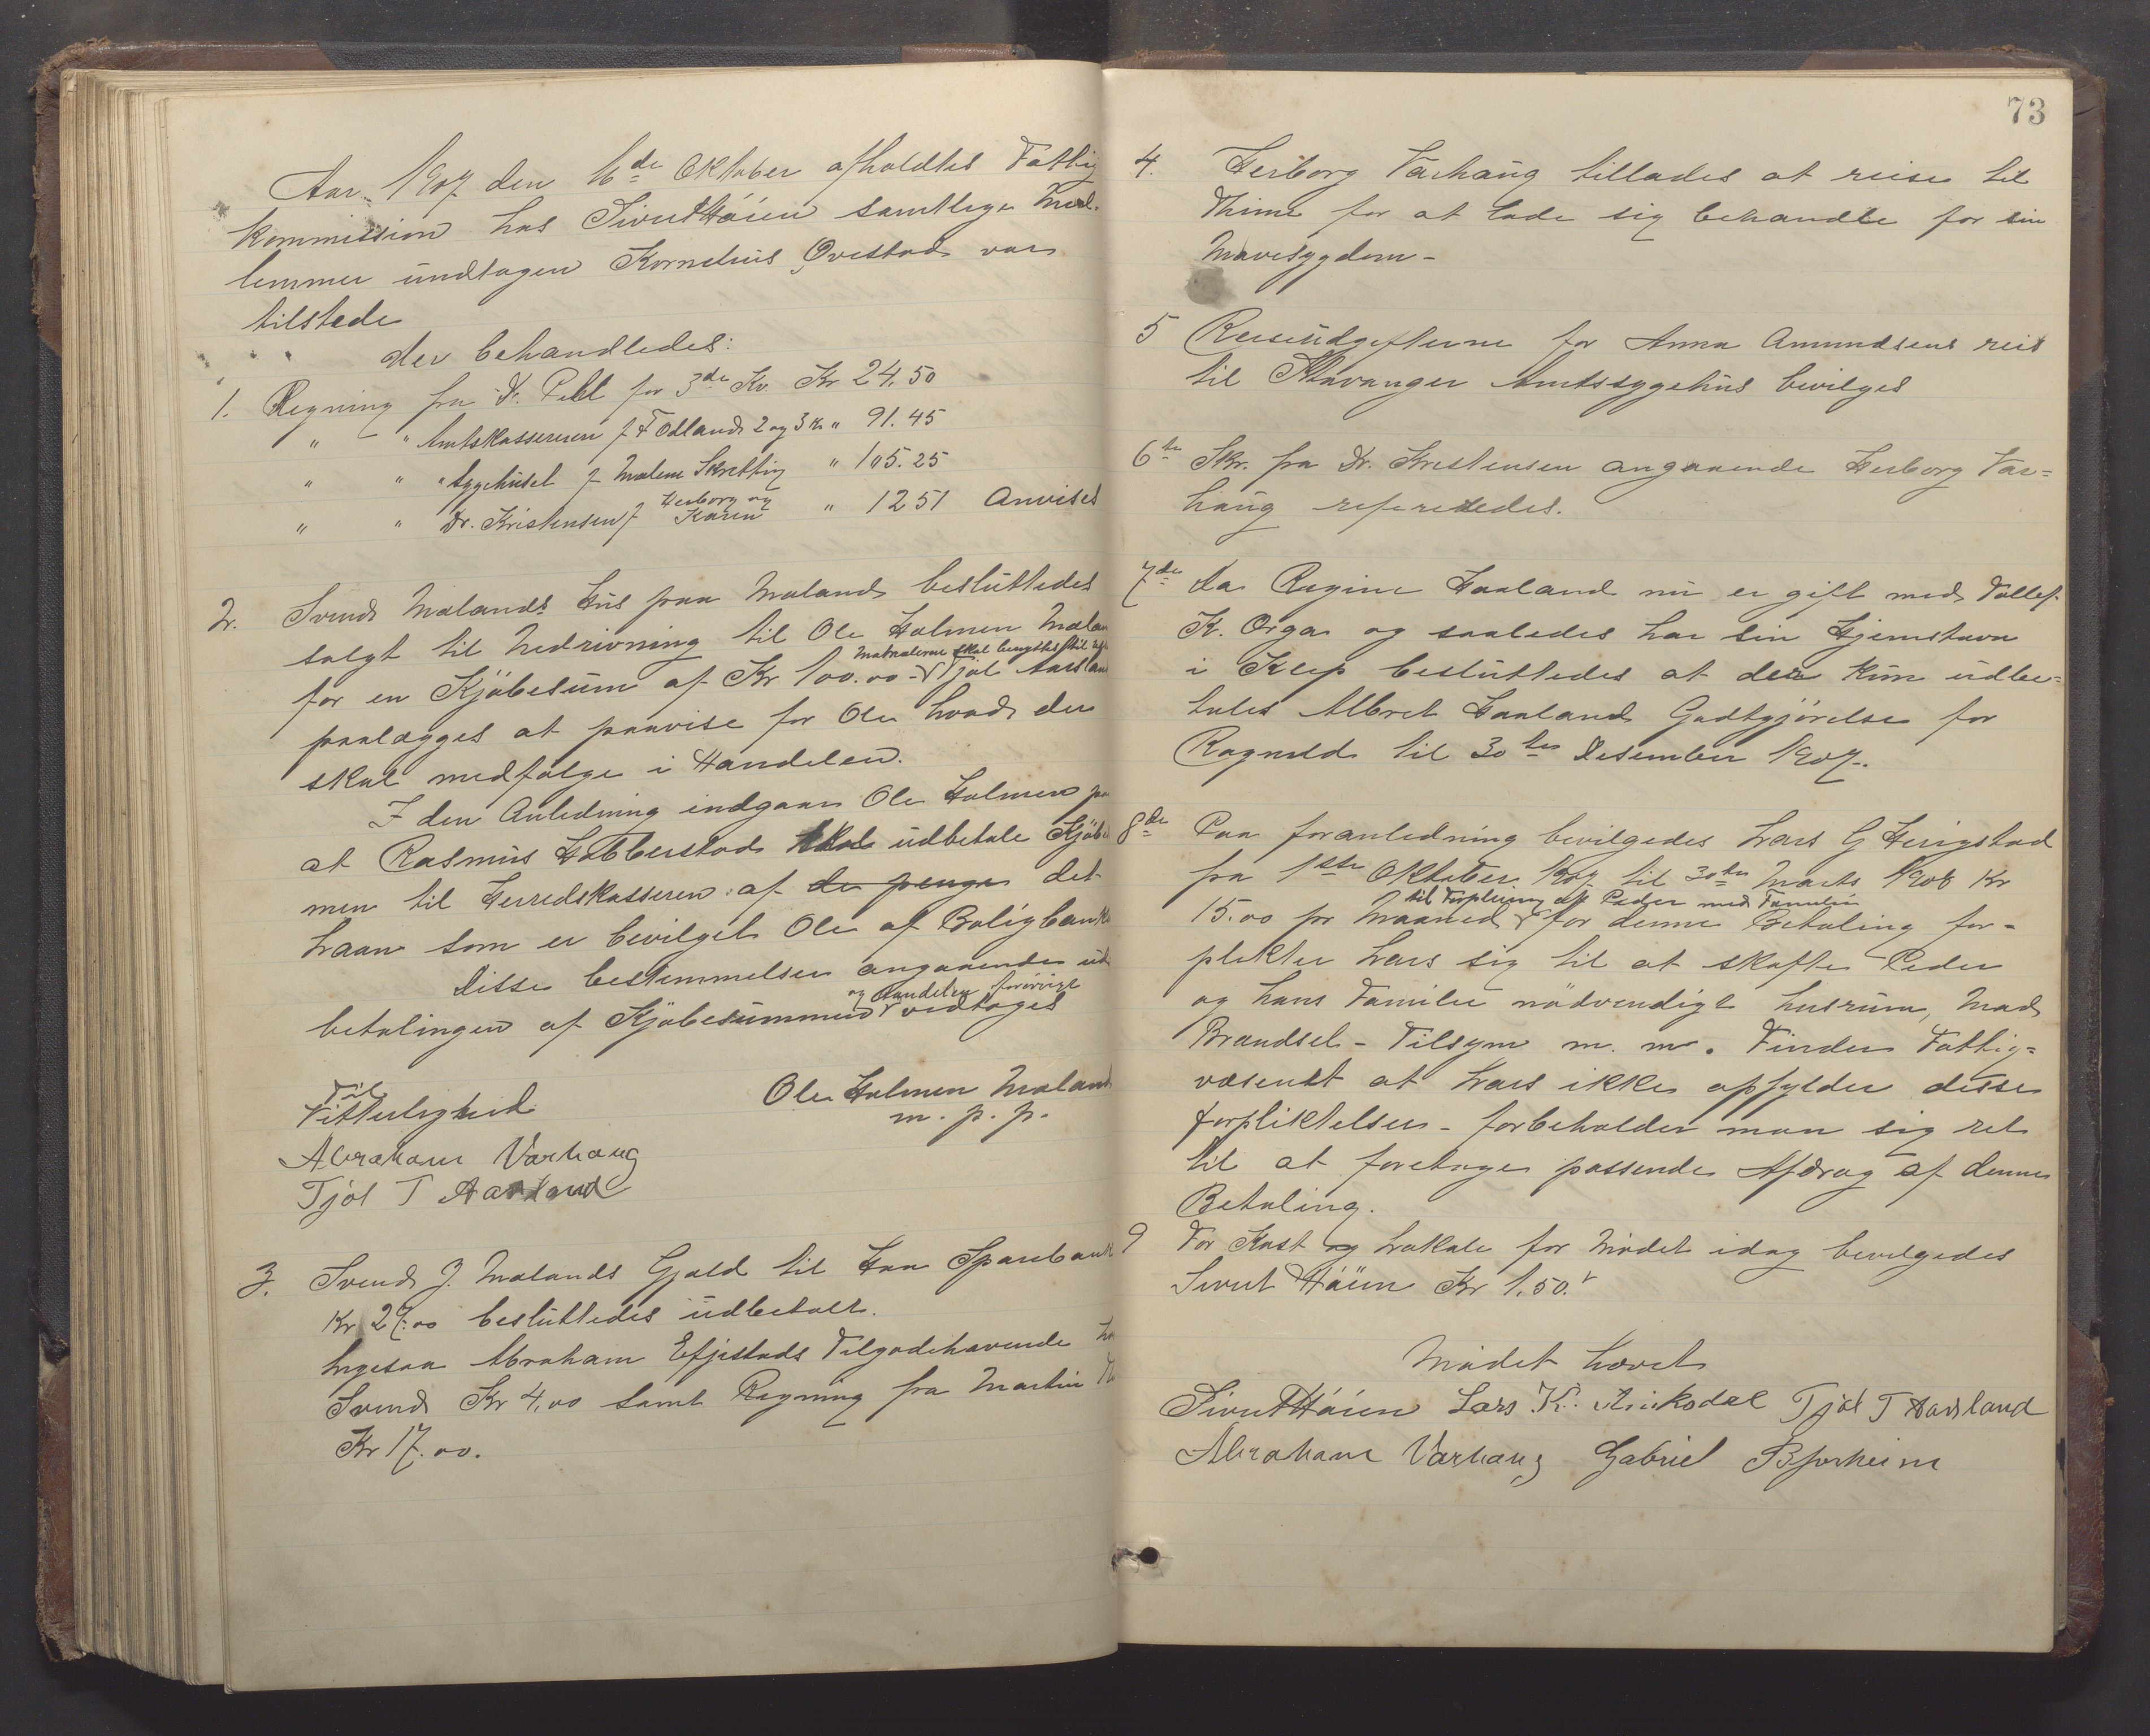 Aar 1907 den 16de Oktober afholdtes Fattig
kommission hos Sivert Höien samtlige Med-
lemmer undtagen Kornelius Ovestad var
tilstede
der behandledes:
1. Regning fra Dr. Pell for 3de Kv. Kr 24.50
" " Amtskassereren f. F Odland 2 og 3 Kv " 91.45
" " Sygehuset f Malene Skretting " 105.25
Herborg og
" " Dr. Kristensen f Karen " 12 51 Anvises
2. Svend Malands Hus paa Maland besluttedes
solgt til Nedrivning til Ole Holmen Malan
Materialerne skal benyttes til
for en Kjöbesum af Kr 100.00 - Tjöl Aarsland
paalægges at paavise for Ole hvad der
skal medfølge i Handelen.
I den Anledning indgaar Ole Holmen pa
at Rasmus Hobberstad skal udbetale Kjöbe
men til Herredskasseren af de penge det
Laan som er bevilget Ole af Boligbanke
Disse bestemmelser angaaende ud
og Handelen forövrigt
betalingen af Kjöbesummen vedtoges
Til
Vitterlighed
Ole Holmen Maland
m. p. p.
Abraham Varhaug
Tjöl T Aarsland
3. Svend J. Malands Gjæld til Haa Spareban
Kr 27.00 besluttedes udbetalt.
Ligesaa Abraham Efjestads Tilgodehavende h
Svend Kr 4,00 samt Regning fra Martin
Kr 17.00.
73
4. Herborg Varhaug tillades at reise til
Thime for at lade sig behandle for sin
Mavesygdom -
5 Reiseudgifterne for Anna Amundsens reis
til Stavanger Amtssygehus bevilges
6te Skr. fra Dr. Kristensen angaaende Herborg Var=
haug refereredes.
7de Da Regine Haaland nu er gift med Tollef
K. Orga og saaledes har sin Hjemstavn
i Klep besluttedes at der kun udbe=
tales Albret Haaland Godtgjörelse for
Ragnild til 30te Desember 1907.
8de Paa foranledning bevilgedes Lars G Herigstad
fra 1ste Oktober 1907 til 30te Marts 1908 Kr
til Forpleining af Peder med Familie
15.00 pr Maaned for denne Betaling for-
plikter Lars sig til at skaffe Peder
og hans Familie nödvendigt husrum, Mad
Brændsel - Tilsyn m. m. Finder Fattig=
væsenet at Lars ikke opfylder disse
forpliktelser - forbeholder man sig ret
til at foretage passende Afdrag af denne
Betaling.
9 For Kost og Lokale for Mödet idag bevilgedes
Sivert Höien Kr 1.50.
Mödet hævet
Sivert Höien Lars K. Auksdal Tjöl T Aarsland
Abraham Varhaug Gabriel Bjorheim